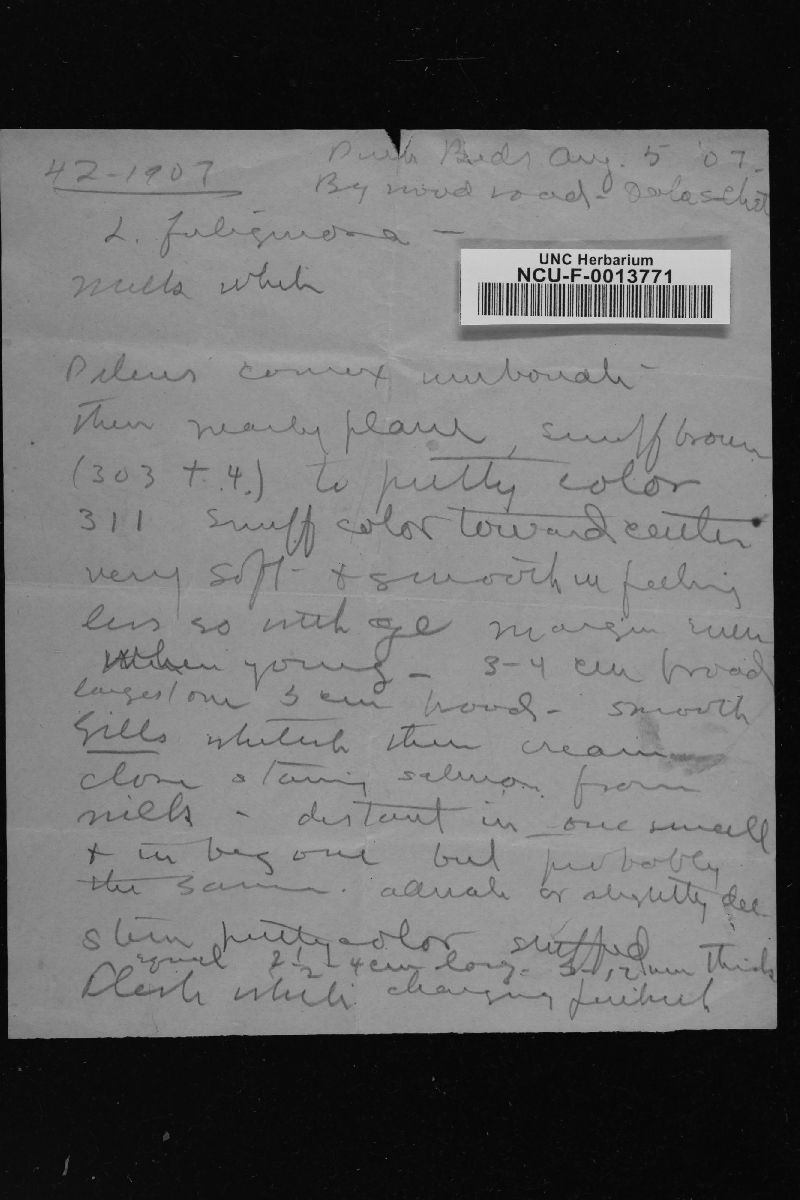 42-1907
Buds Aug. 5 '07.
By wood road -
L. fuliginosa -
milk white
UNC Herbarium
NCU-F-0013771
Pileus convex umbonate
then nearly plane, snuff brown
(303 + 4.) to putty color
311 snuff color toward center
very soft + smooth in feeling
less so with age margin even
when young - 3-4 cm broad
largest one 5 cm broad - smooth
Gills whitish then cream
close staining salmon from
milk - distant in one small
+ in big one but probably
the same. adnate or slightly dec.
Stem putty color stuffed
equal 2 1/2-4 cm long. mm thick
Flesh white changing pinkish